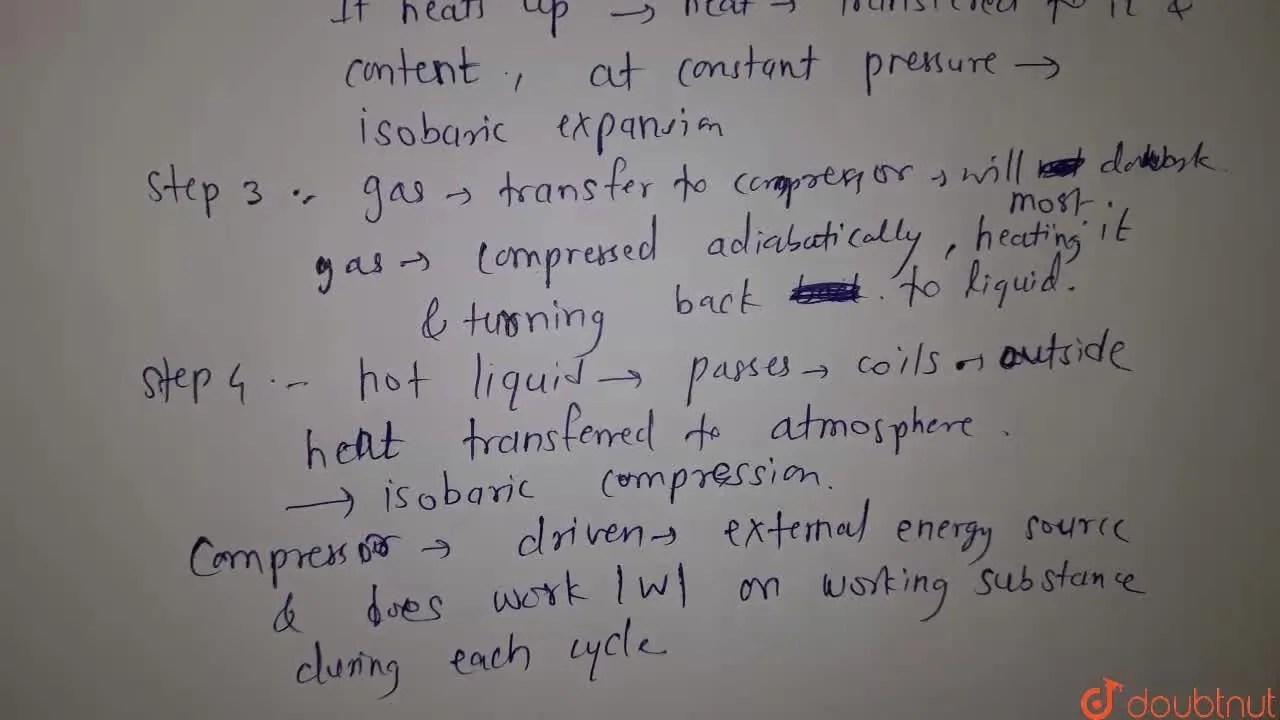 It heats up → heat → transferred to it &
content, at constant pressure →
isobaric expansion
Step 3 :- gas → transfer to compressor → will do work
most.
gas → compressed adiabatically, heating it
& turning back to liquid.
Step 4 :- hot liquid → passes → coils → outside
heat transferred to atmosphere.
→ isobaric compression.
Compressor → driven → external energy source
& does work |W| on working substance
during each cycle
doubtnut